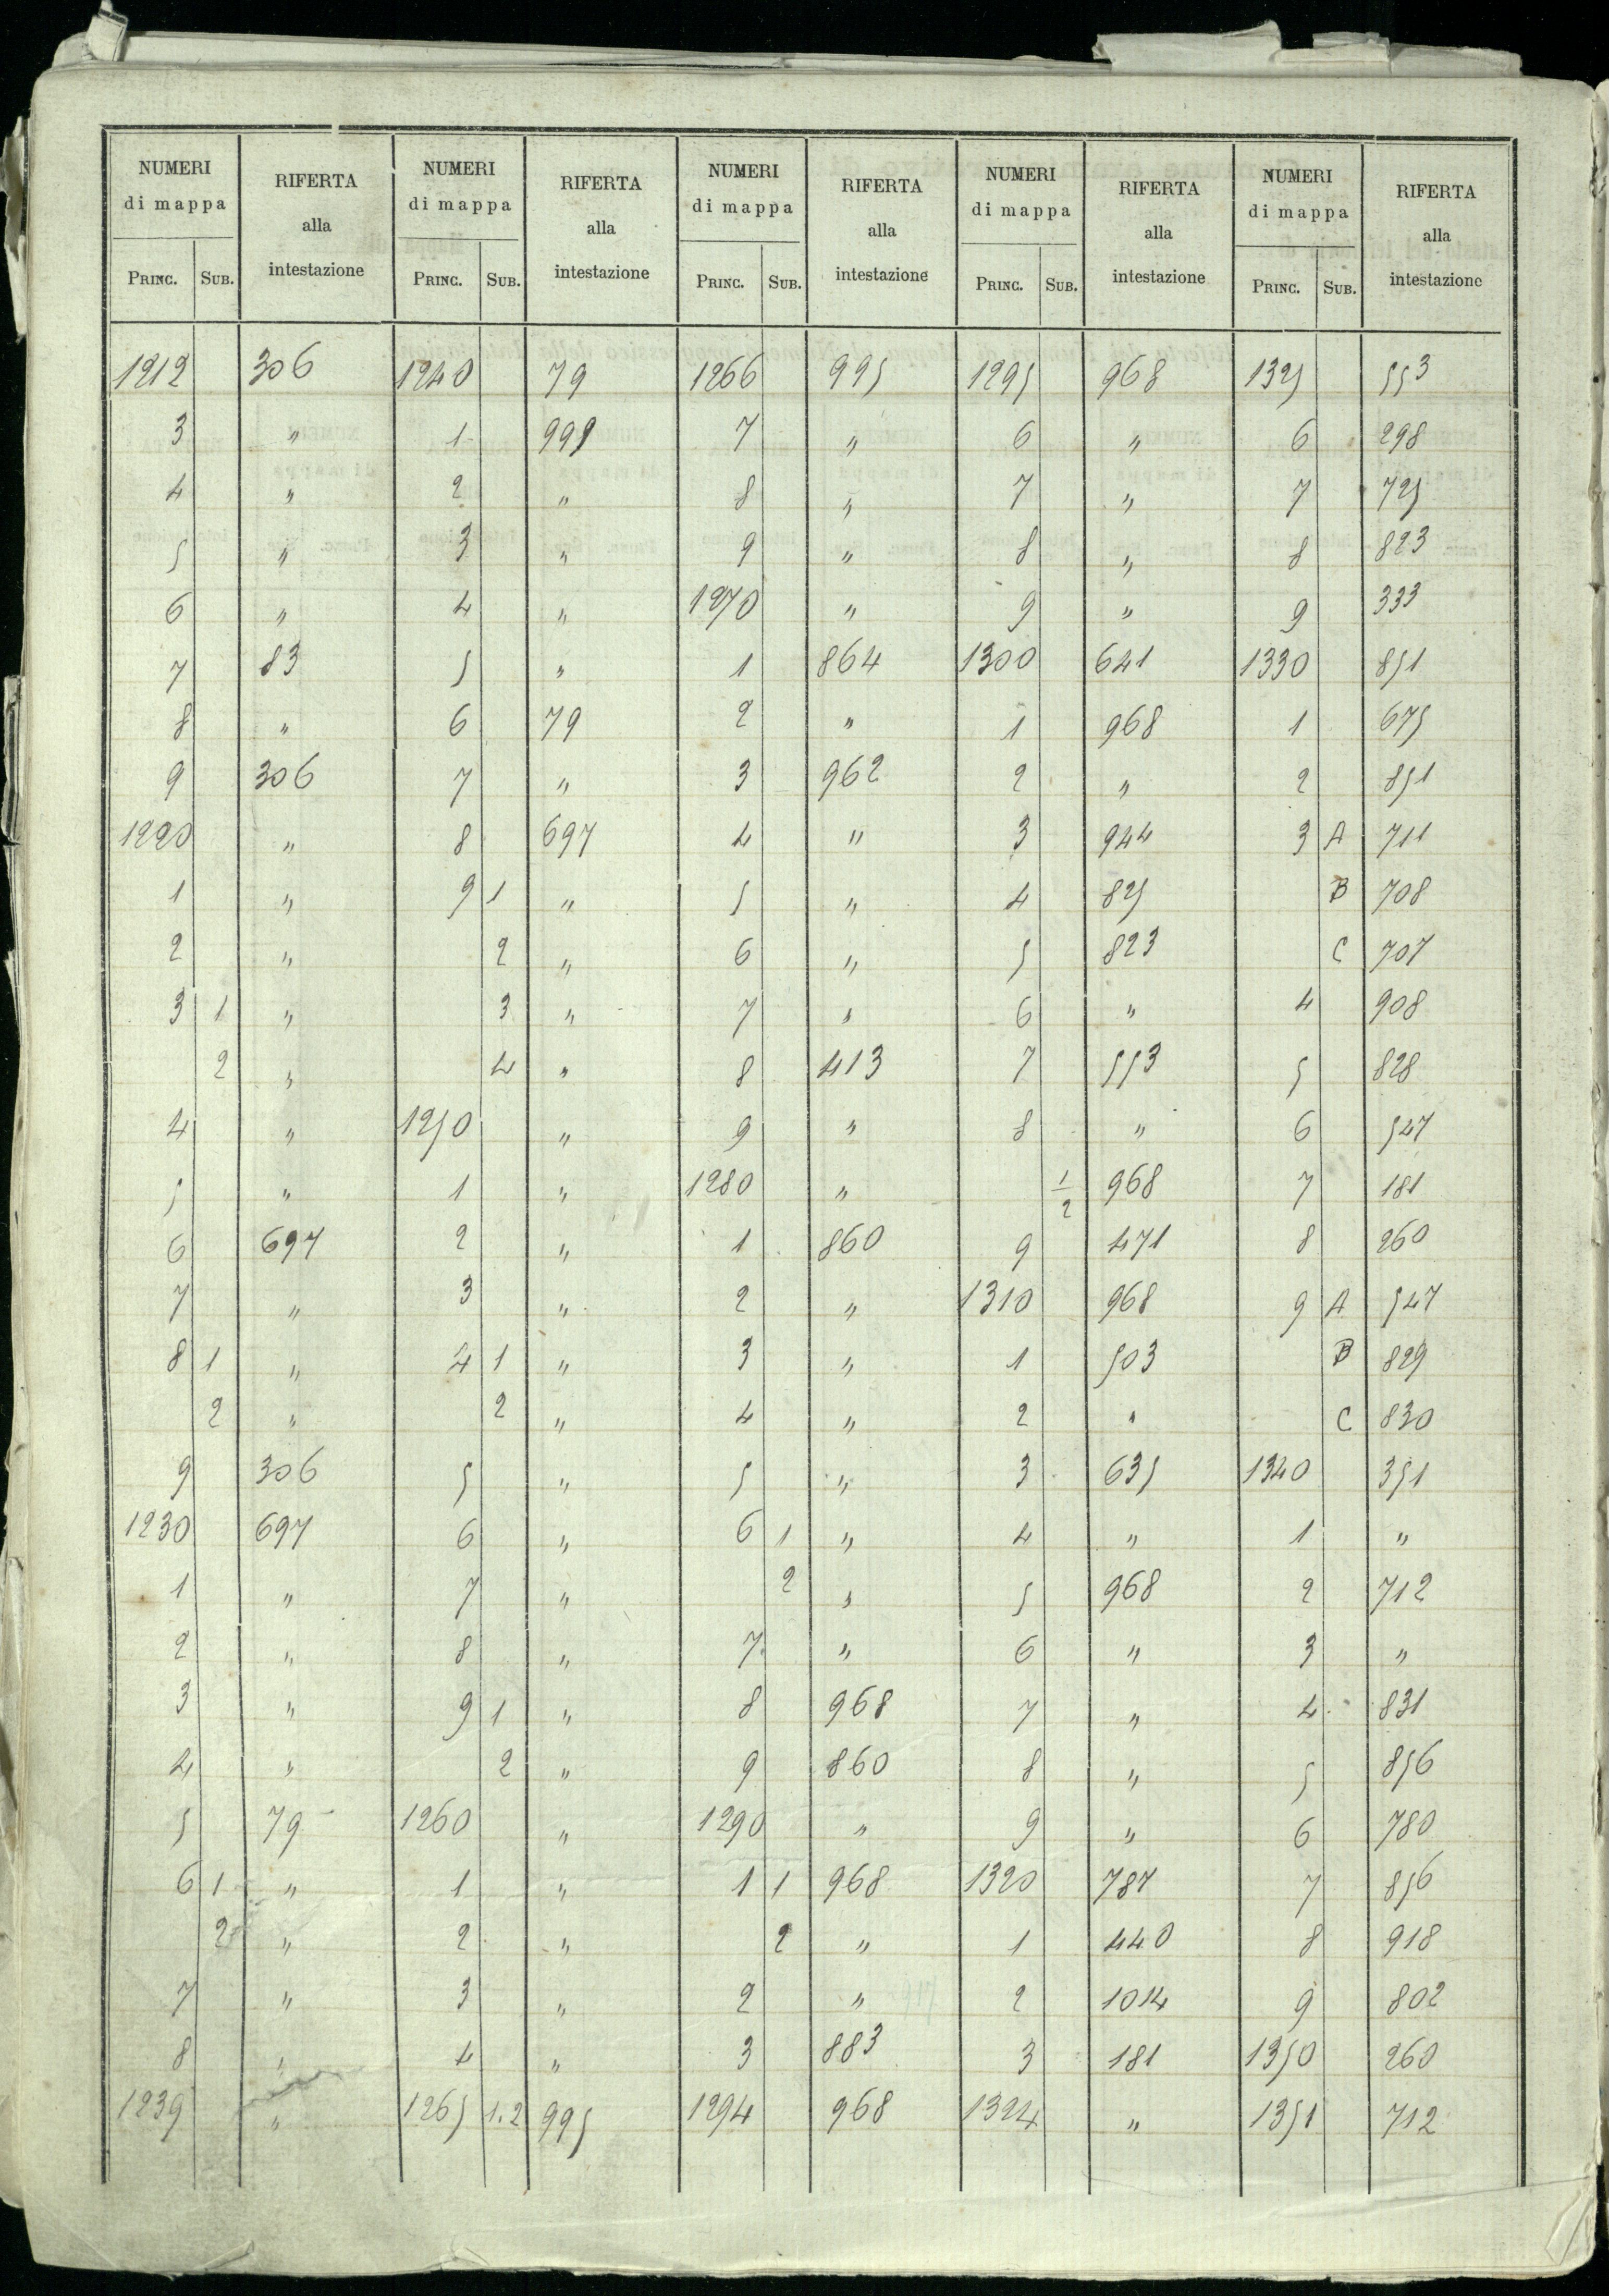 NUMERI di mappa | RIFERTA alla intestazione | NUMERI di mappa | RIFERTA alla intestazione | NUMERI di mappa | RIFERTA alla intestazione | NUMERI di mappa | RIFERTA alla intestazione | NUMERI di mappa | RIFERTA alla intestazione
PRINC. | SUB. | PRINC. | SUB. | PRINC. | SUB. | PRINC. | SUB. | PRINC. | SUB.
1212 306 1240 79 1266 995 1295 968 1325 553
3 " 1 999 7 " 6 " 6 298
4 " 2 " 8 " 7 " 7 725
5 " 3 " 9 " 8 " 8 823
6 " 4 " 1270 " 9 " 9 333
7 83 5 " 1 864 1300 641 1330 851
8 " 6 79 2 " 1 968 1 675
9 306 7 " 3 962 2 " 2 851
1220 " 8 697 4 " 3 944 3 A 711
1 " 9 1 " 5 " 4 825 B 708
2 " 2 " 6 " 5 823 C 707
3 1 " 3 " 7 " 6 " 4 908
2 " 4 " 8 413 7 553 5 828
4 " 1250 " 9 " 8 " 6 547
5 " 1 " 1280 " 1/2 968 7 181
6 697 2 " 1 860 9 471 8 260
7 " 3 " 2 " 1310 968 9 A 547
8 1 " 4 1 " 3 " 1 503 B 829
2 " 2 " 4 " 2 " C 830
9 306 5 " 5 " 3 635 1340 351
1230 697 6 " 6 1 " 4 " 1 "
1 " 7 " 2 " 5 968 2 712
2 " 8 " 7 " 6 " 3 "
3 " 9 1 " 8 968 7 " 4 831
4 " 2 " 9 860 8 " 5 856
5 79 1260 " 1290 " 9 " 6 780
6 1 " 1 " 1 1 968 1320 787 7 856
2 " 2 " 2 " 1 440 8 918
7 " 3 " 2 " 2 1014 9 802
8 " 4 " 3 883 3 181 1350 260
1239 " 1265 1.2 995 1294 968 1324 " 1351 712